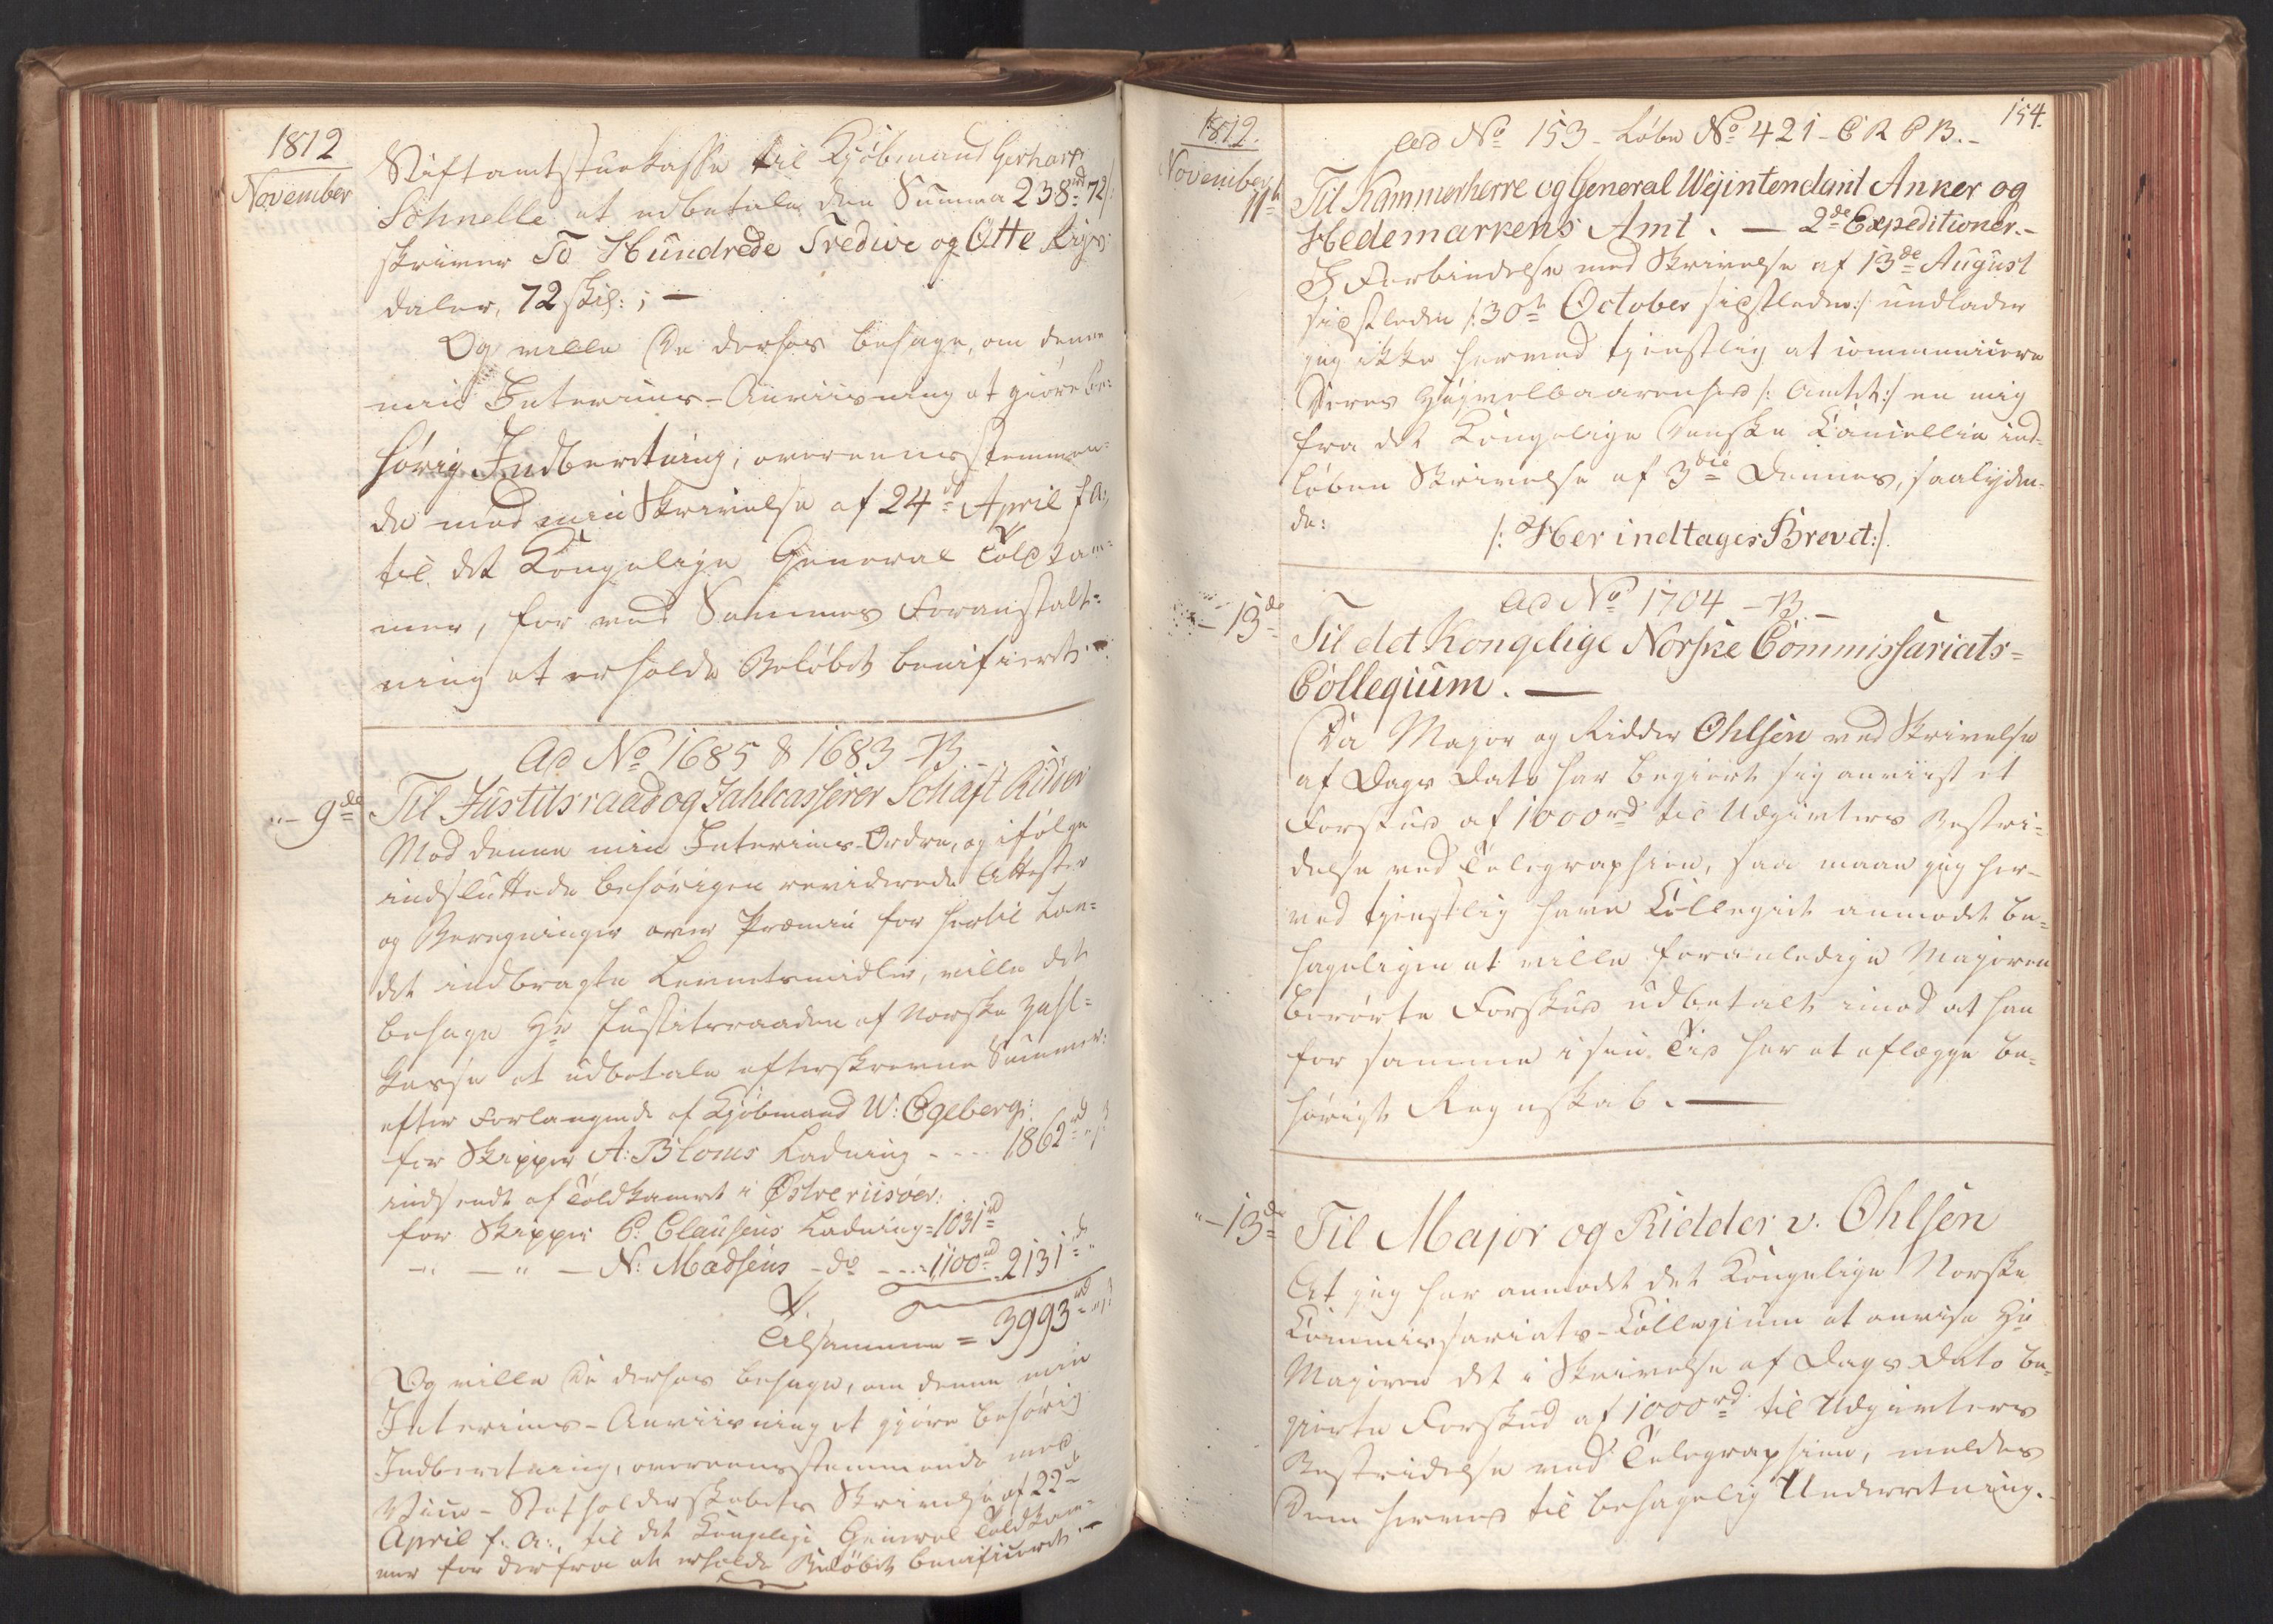 1812
November
Stiftamtstuekasse til Kjöbmand Gerhard
Schnelle at udbetale den Summa 238rd 72s
skriver To Hundrede Tredive og Otte Rigs-
daler, 72 skil: ; —
Og ville De derhos behage, om denne
min Interims-Anviisning at giöre be-
hörig Indberetning; overeensstemmen-
de med min Skrivelse af 24de April f. A:
til det Kongelige General Toldkam-
mer, for ved Sammes Foranstalt-
ning at erholde Belöbet beneficeret. —
Ad No 1685 & 1683 - B. -
" — 9de
Til Justitsraad og Zahlcasserer Schaft Ridder
Mod denne min Interims-Ordre, og ifölge
indsluttede behörigen reviderede Attester
og Beregninger over Præmie for hertil Lan-
det indbragte Levnetsmidler, ville det
behage Hr Justitsraaden af Norske Zahl-
kasse at udbetale efterskrevne Summer:
efter Forlangende af Kjöbmand W: Egeberg:
for Skipper A: Bloms Ladning - - - - 1862rd " s
indsendt af Toldkamret i Østeriisöer:
for Skipper P: Clausens Ladning = 1031rd
— " — " — N: Madsens — do — - - - 1100rd 2131rd "
Tilsammen = 3993rd " s
Og ville De derhos behage, om denne min
Interims-Anviisning at gjöre behörig
Indberetning, overeensstemmende med
Vice-Statholderskabets Skrivelse af 22de
April f. A:, til det Kongelige General Toldkam-
mer for derfra at erholde Belöbet beneficeret. —
154.
1812.
November
11te
ad No 153 - Löbe No 421 - C R P B. -
Til Kammerherre og General Vejintendant Anker og
Hedemarkens Amt. — 2de Expeditioner. -
I Forbindelse med Skrivelse af 13de August
sidstleden /: 30te October sidstleden :/ undlader
jeg ikke herved tjenstlig at communicere
Deres Höjvelbaarenhed /: Amtet :/ en mig
fra det Kongelige Danske Cancellie ind-
löben Skrivelse af 3die dennes, saalyden-
de:
/: Her indtages Brevet :/
Ad No 1704 - B —
" — 13de
Til det Kongelige Norske Commissariats-
Collegium. —
Da Major og Ridder Ohlsen ved Skrivelse
af Dags Dato har begiert sig anviist et
Forskud af 1000rd til Udgivters Bestri-
delse ved Telegraphien, saa maae jeg her-
ved tjenstlig have Collegiet anmodet be-
hageligen at ville foranledige Majoren
berörte Forskud udbetalt imod at han
for samme i sin Tid har at aflægge be-
hörigt Regnskab. —
" — 13de
Til Major og Ridder v. Ohlsen
At jeg har anmodet det Kongelige Norske
Commissariats-Collegium at anvise Hr
Majoren det i Skrivelse af Dags Dato be-
gierte Forskud af 1000rd til Udgivters
Bestridelse ved Telegraphien, meldes
Dem herved til behagelig Underretning.